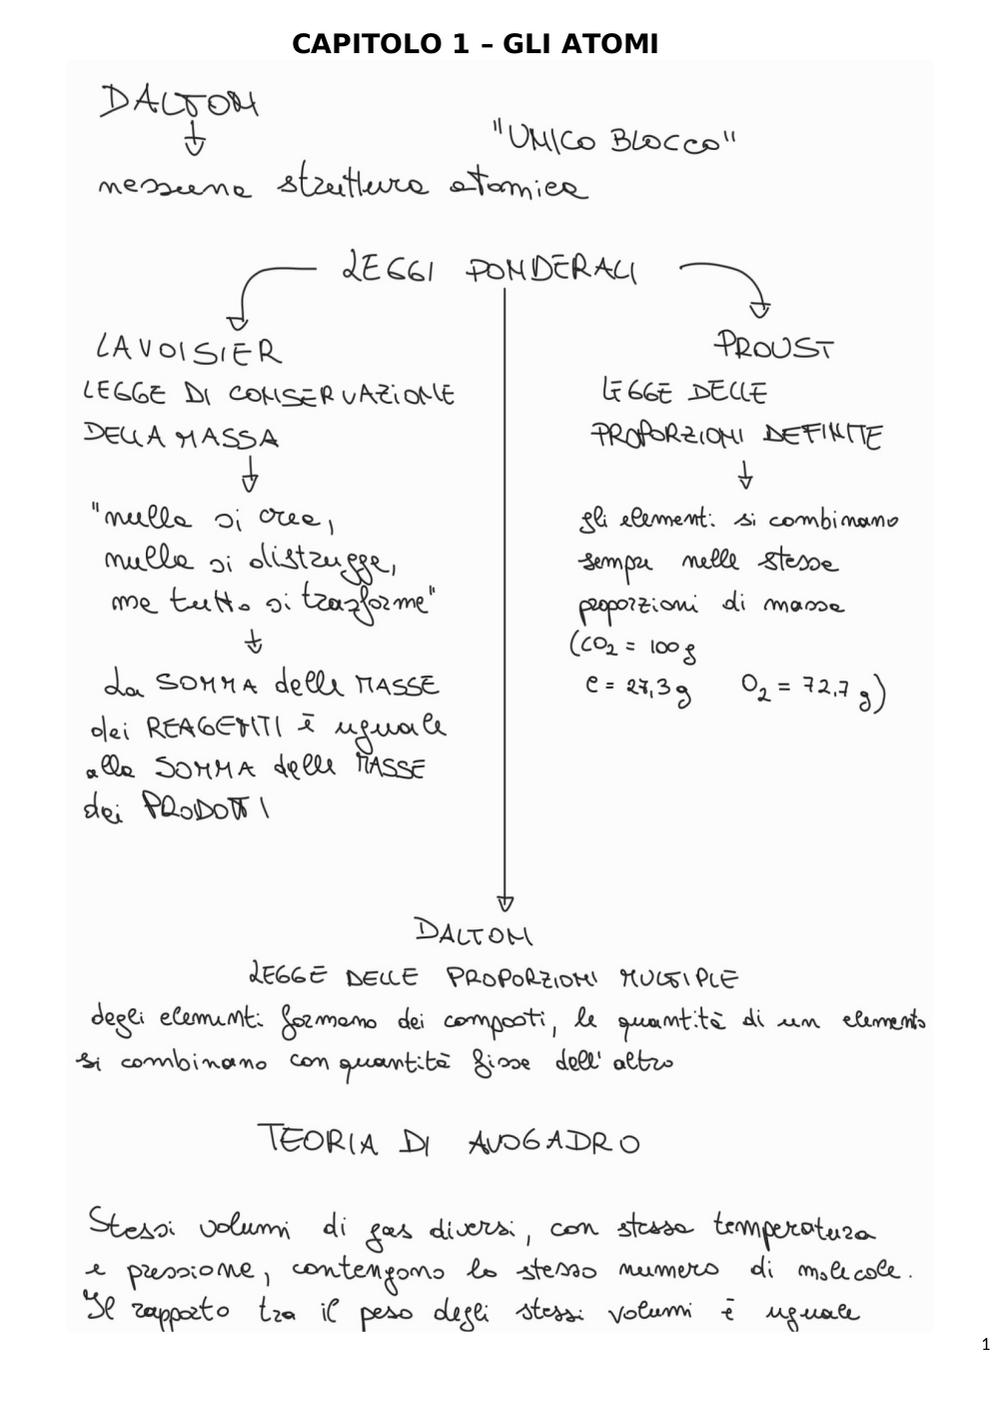 CAPITOLO 1 – GLI ATOMI
DALTON
"UNICO BLOCCO"
nessuna struttura atomica
LEGGI PONDERALI
LAVOISIER
LEGGE DI CONSERVAZIONE
DELLA MASSA
"nulla si crea,
nulla si distrugge,
ma tutto si trasforma"
La SOMMA delle MASSE
dei REAGENTI è uguale
alla SOMMA delle MASSE
dei PRODOTTI
PROUST
LEGGE DELLE
PROPORZIONI DEFINITE
gli elementi si combinano
sempre nelle stesse
proporzioni di massa
(CO2 = 100 g
C = 27,3 g O2 = 72,7 g)
DALTON
LEGGE DELLE PROPORZIONI MULTIPLE
degli elementi formano dei composti, le quantità di un elemento
si combinano con quantità fisse dell'altro
TEORIA DI AVOGADRO
Stessi volumi di gas diversi, con stessa temperatura
e pressione, contengono lo stesso numero di molecole.
Il rapporto tra il peso degli stessi volumi è uguale
1